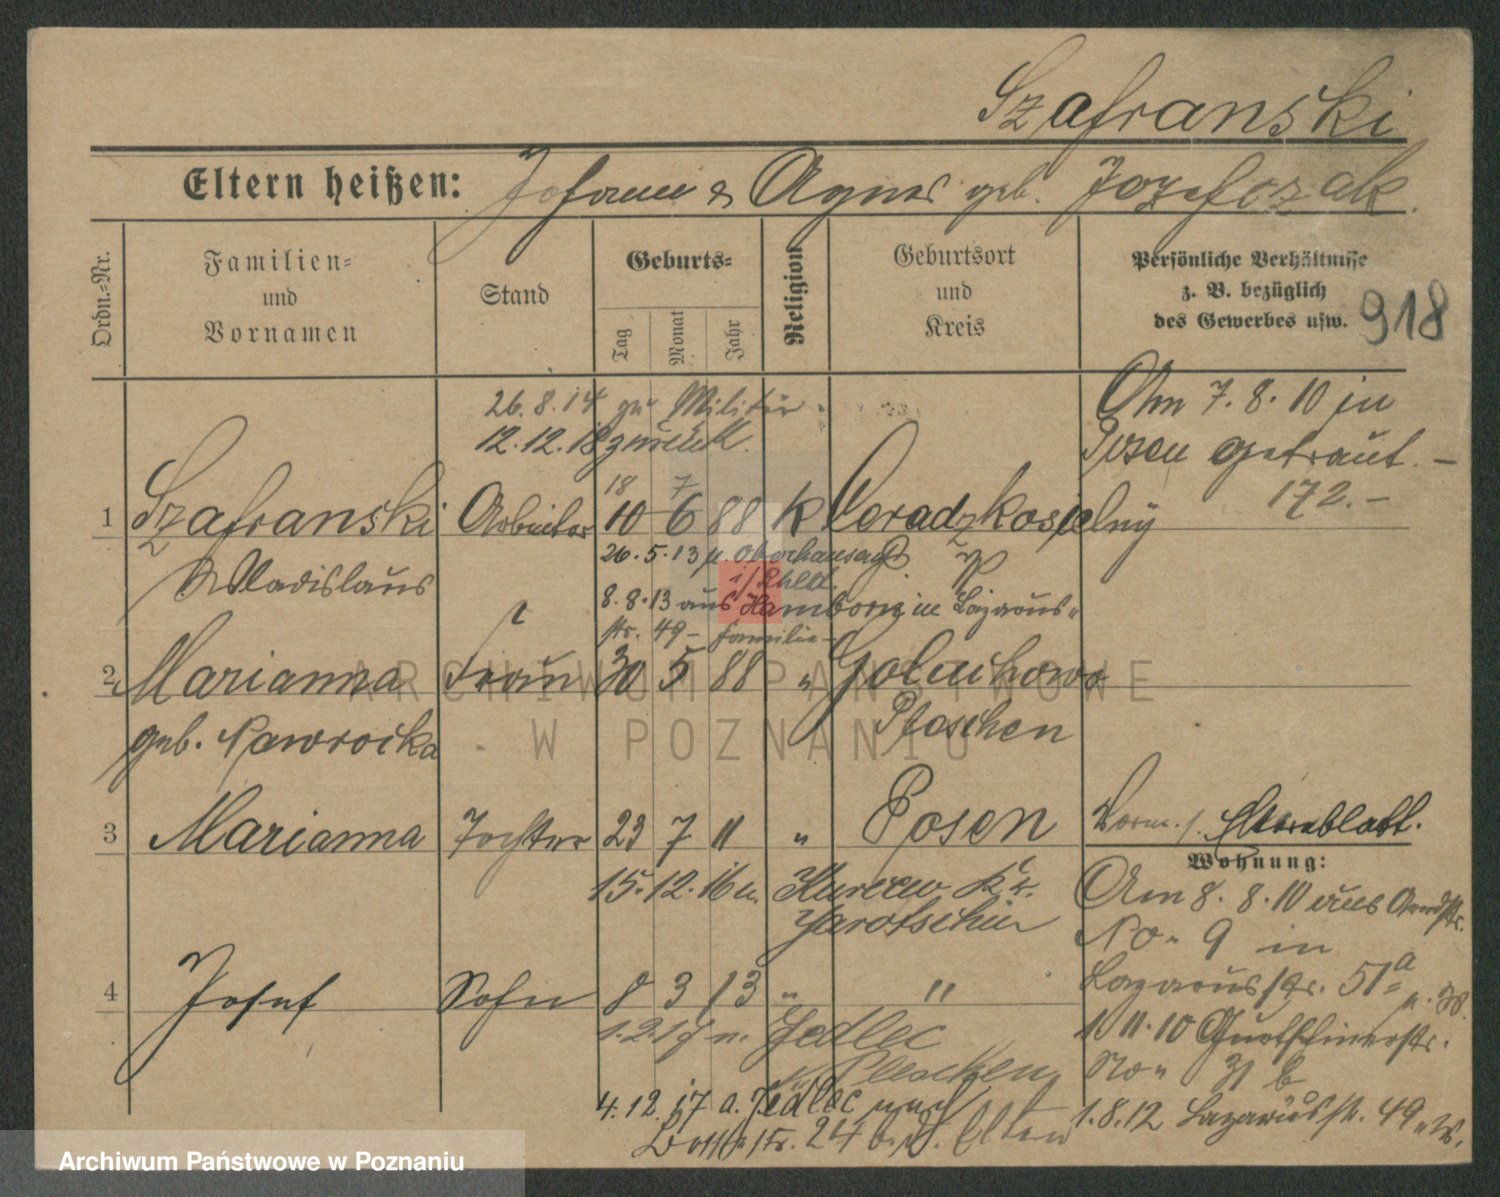 Szafranski
Eltern heißen: Johann & Agnes geb. Jozefczak.
Ordn.-Nr.
Familien- und Vornamen
Stand
Geburts-
Tag
Monat
Jahr
Religion
Geburtsort und Kreis
Persönliche Verhältnisse
z. B. bezüglich
des Gewerbes usw.
918
26.8.14 zu Militär
12.12.18 zurück.
Am 7.8.10 in
Posen getraut. –
172. –
18 7
1 Szafranski Arbeiter 10 6 88 k
Wladislaus
26.5.13 n. Oberhausen
i/Rhld.
8.8.13 aus Hamborn in Lazarus-
str. 49 – Familie –
2 Marianna Frau 30 5 88 " Goluchowo
geb. Nawrocka Pleschen
3 Marianna Tochter 23 7 11 " Posen
Vorm. s. Elternblatt.
Wohnung:
15.12.16 n.
Jarotschin
Am 8.8.10 aus
No. 9 in
Lazarusstr. 51a
4 Josef Sohn 8 3 13 " "
1.2.17 n. Jedlec
Pleschen
11.11.10
No. 31 b
4.12.17 a. Jedlec nach
24 b. d. Eltern
1.8.12 Lazarusstr. 49
ARCHIWUM PAŃSTWOWE
W POZNANIU
Archiwum Państwowe w Poznaniu